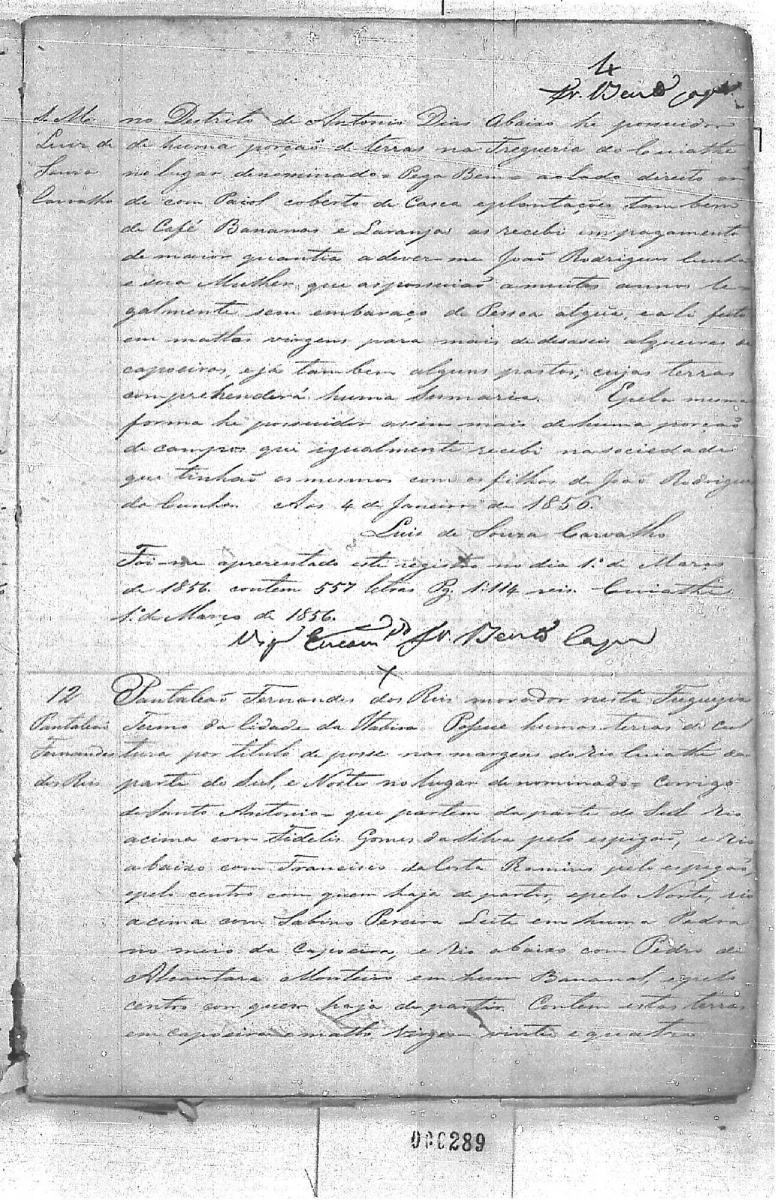 4
Fr. Bento
S. Mo
Luiz de
Souza
Carvalho
no Destrito de Antonio Dias Abaixo he possuidor
de huma porção de terras na Fregueria do Cuiathé
no lugar denominado Pega Bem ao lado direito on
de com Paiol coberto de Casca e plantações tambem
de Café Bananas e Laranja as recebi em pagamento
de maior quantia a dever-me João Rodrigues Cunha
e sua Mulher, que as possuião a muitos annos le-
galmente sem embaraço de Pessoa algũa, e ali
em mattas virgens para mais de deseseis alqueires de
capoeiras, e já tambem alguns pastos, cujas terras
comprehenderá huma Sumaria. E pela mesma
forma he possuidor assim mais de huma porção
de campos que igualmente recebi na sociedade
que tinhão os mesmos com os filhos de João Rodrigues
da Cunha. Aos 4 de Janeiro de 1856.
Luis de Souza Carvalho
Foi-me apresentado este registro no dia 1º de Março
de 1856. contem 557 letras Pg. 1:114 reis. Cuiathé
1º de Março de 1856.
Vigº Encomdo Fr. Bento
12
Pantaleão
Fernandes
dos Reis
Pantaleão Fernandes dos Reis morador nesta Freguezia
Termo da Cidade da Itabira. Possue humas terras de Cul
tura por titulo de posse nas margens do rio Cuiathé da
parte do Sul, e Norte no lugar denominado corrigo
de Santo Antonio que partem da parte do Sul rio
acima com Fidelis Gomes da Silva pelo espigão, e rio
abaixo com Francisco da Costa Ramires pelo espigão,
e pelo centro com quem haja de partir, e pelo Norte, rio
acima com Sabino Pereira Leite em huma Pedra
no meio da Capoeira, e rio abaixo com Pedro de
Alcantara Monteiro em hum Bananal, e pelo
centro com quem haja de partir. Contem estas terras
em capoeiras e matto virgem vinte e quatro
000289